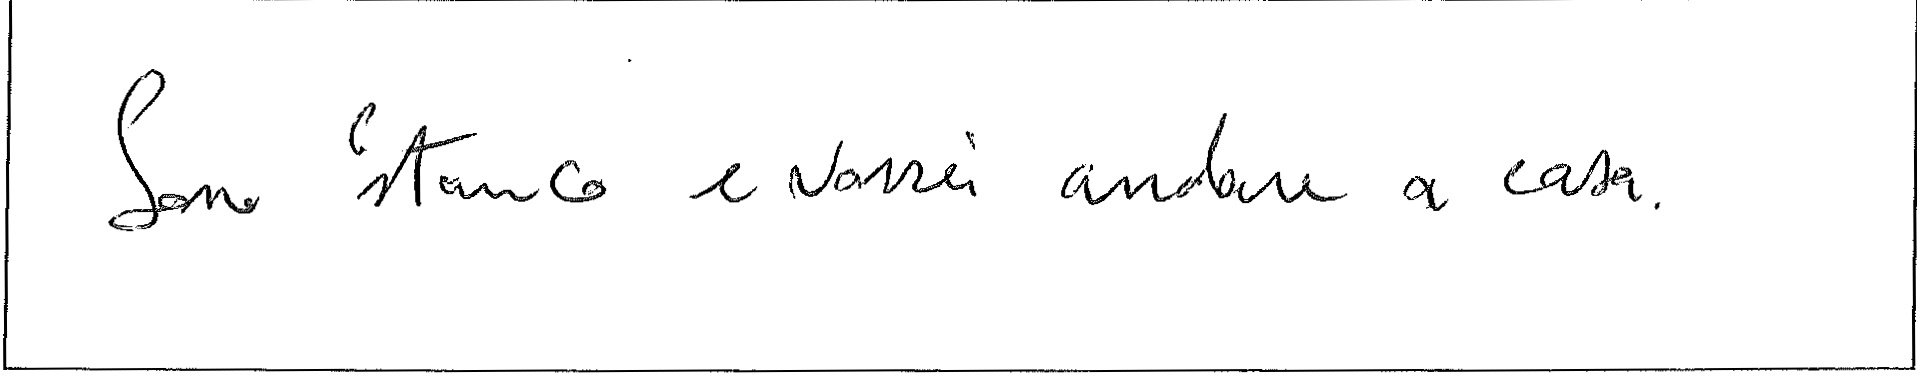 Sono stanco e vorrei andare a casa.